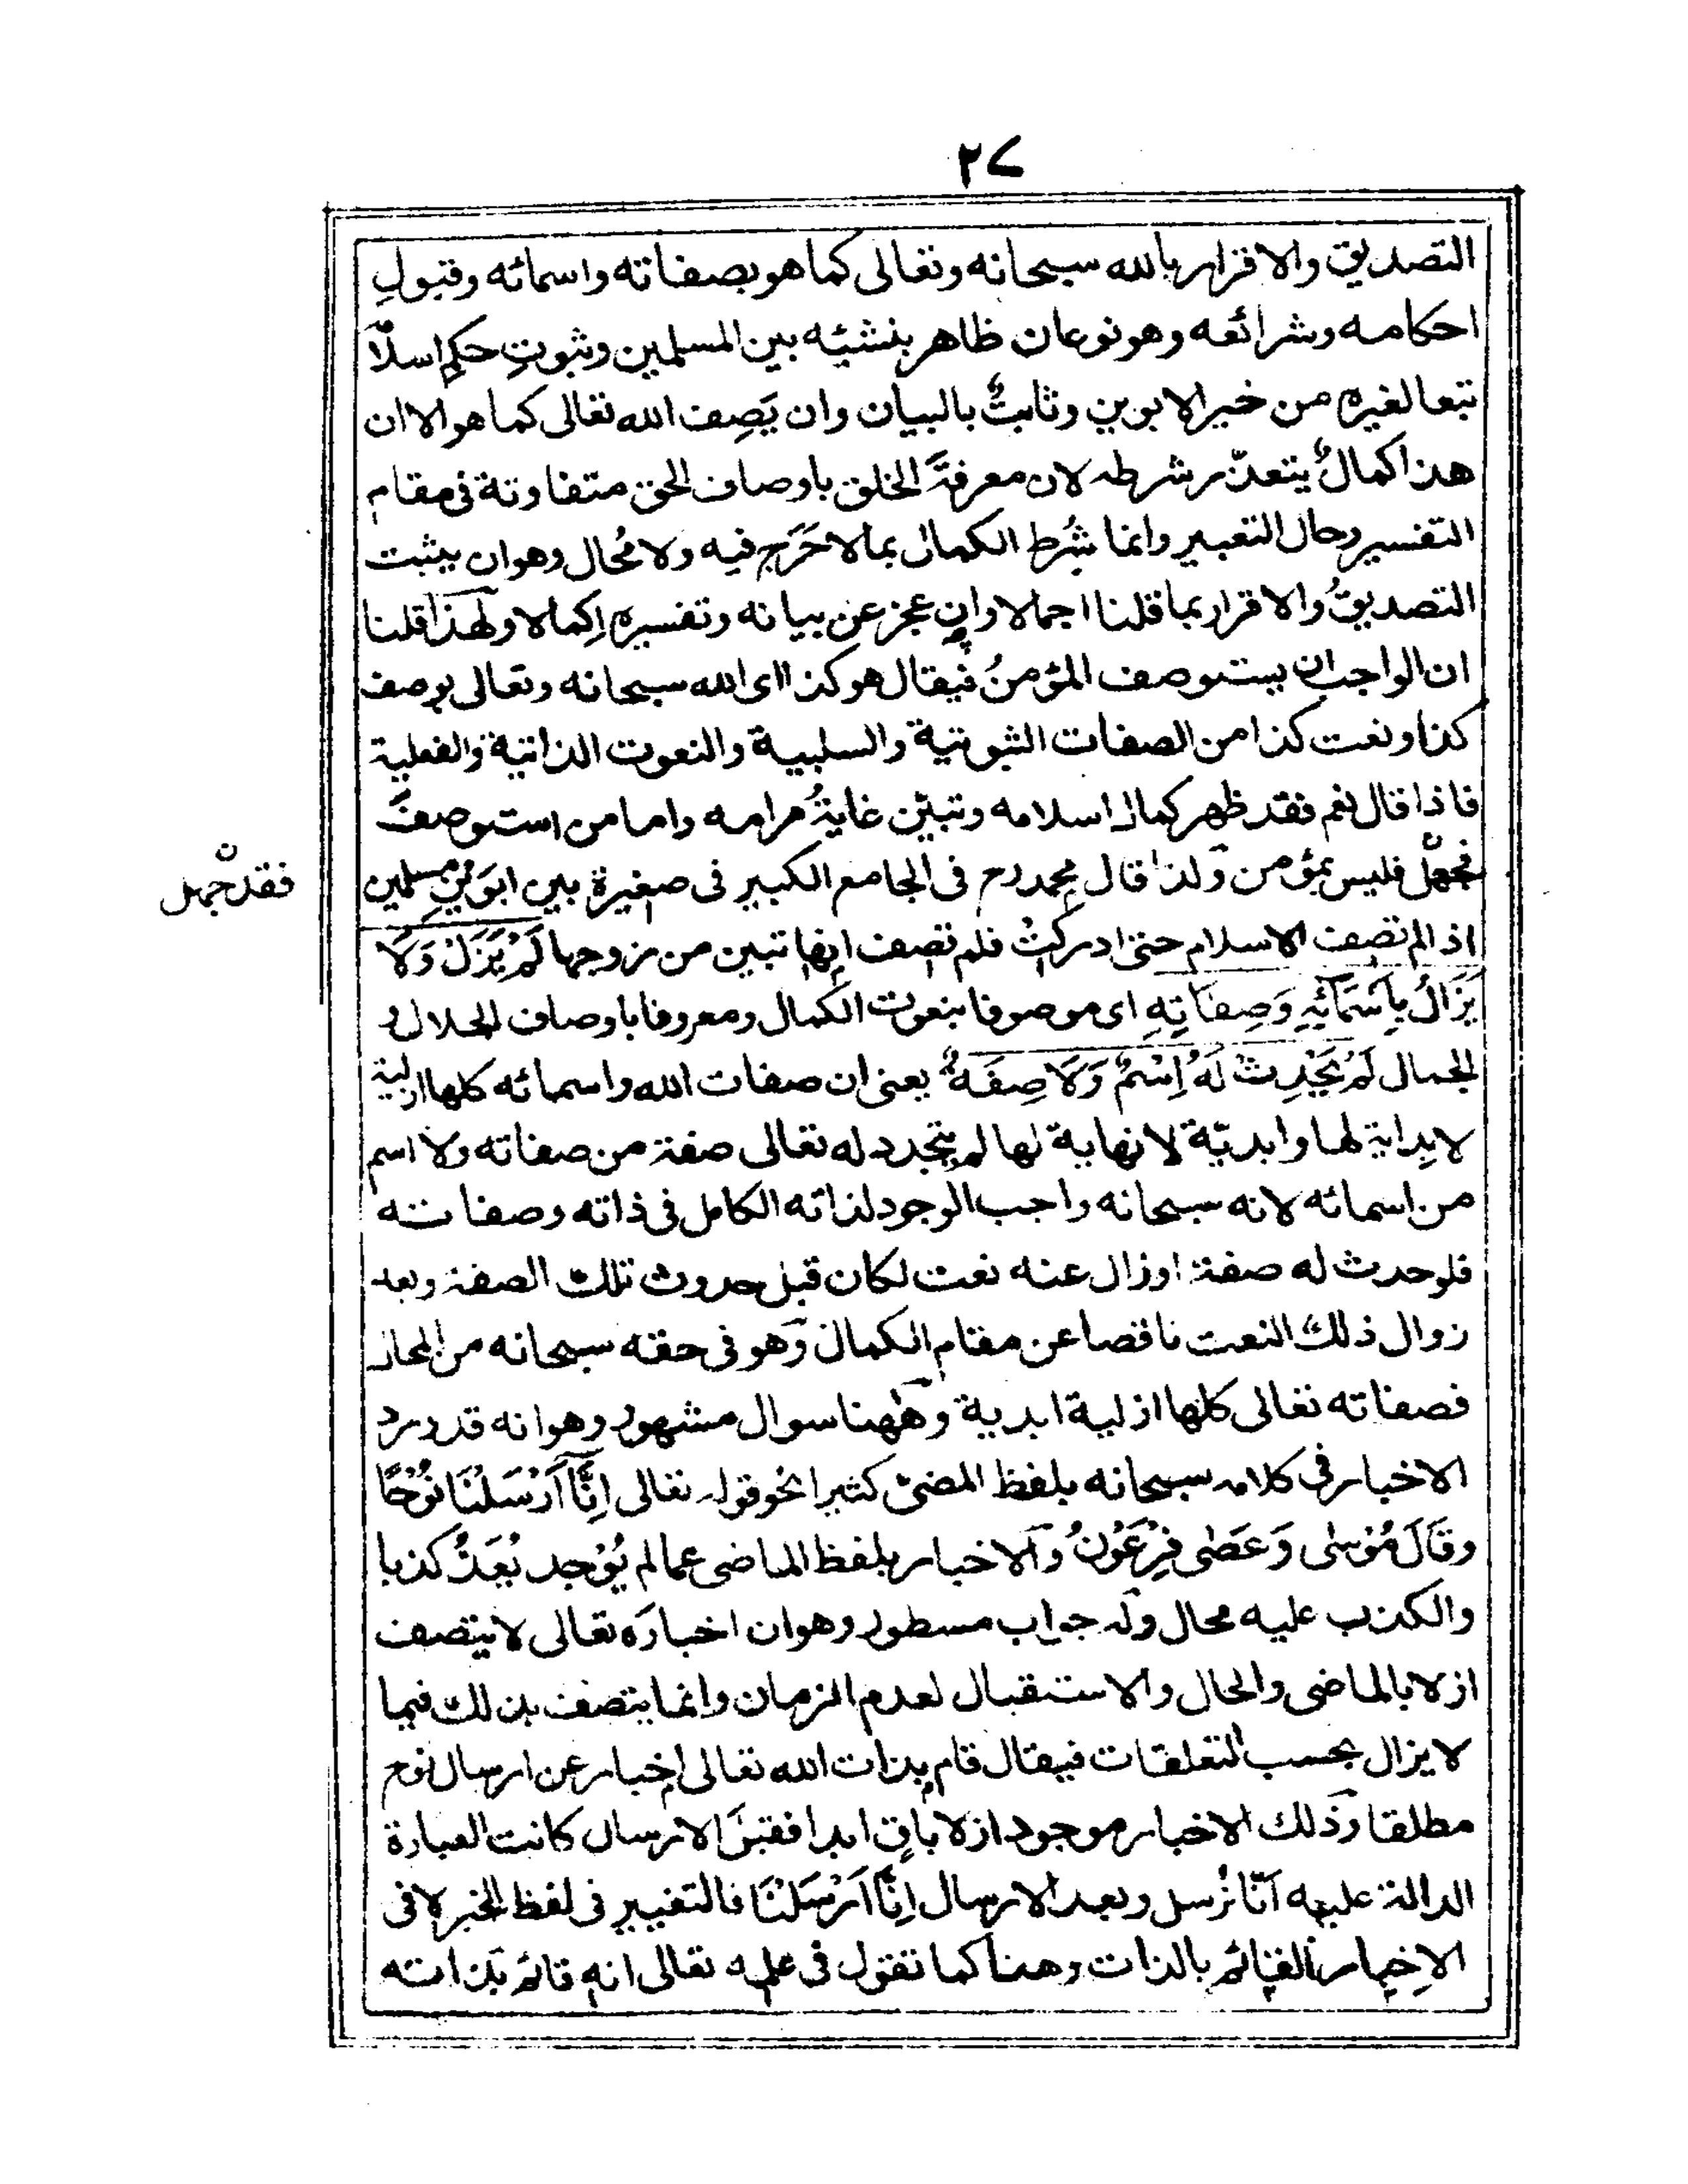 ٢٧
التصديق والاقرار بالله سبحانه وتعالى كما هو بصفاته واسمائه وقبولِ
احكامه وشرائعه وهو نوعان ظاهر بنشيّه بين المسلمين وثبوتِ حكمِ اسلامٍ
تبعا لغيره من خير الابوين وثابتٌ بالبيان وان يَصِف الله تعالى كما هو الا ان
هذا كمالٌ يتعذّر شرطه لان معرفةَ الخلق باوصاف الحق متفاوتة فى مقام
التفسير وحال التعبير وانما شُرط الكمال بما لا حَرَج فيه ولا مُحال وهو ان يثبت
التصديقُ والاقرار بما قلنا اجمالا وان عجز عن بيانه وتفسيره اِكمالا ولهذا قلنا
ان الواجب ان يستوصف المؤمنُ فيقال هو كذا اى الله سبحانه وتعالى بوصف
كذا ونعت كذا من الصفات الثبوتية والسلبية والنعوت الذاتية والفعلية
فاذا قال نعم فقد ظهر كمال اسلامه وتبيّن غايةُ مرامه واما من استوصفَ
فجهل فليس بمؤمن ولذا قال محمد رح فى الجامع الكبير فى صغيرة بين ابوَينِ مسلمين
فقد جهل ن
اذا لم تصف الاسلام حتى ادركت فلم تصف انها تبين من زوجها لَمْ يَزَلْ وَلَا
يَزَالُ بِاَسْمَائِهٖ وَصِفَاتِهٖ اى موصوفا بنعوت الكمال ومعروفا باوصاف الجلال و
الجمال لَمْ يَحْدِثْ لَهٗ اِسْمٌ وَلَا صِفَةٌ يعنى ان صفات الله واسمائه كلها ازلية
لا بداية لها وابديّة لا نهاية لها لم يتجدد له تعالى صفة من صفاته ولا اسم
من اسمائه لانه سبحانه واجب الوجود لذاته الكامل فى ذاته وصفاته
فلو حدث له صفة او زال عنه نعت لكان قبل حدوث تلك الصفة وبعد
زوال ذلك النعت ناقصا عن مقام الكمال وهو فى حقه سبحانه من المحال
فصفاته تعالى كلها ازلية ابدية وههنا سوال مشهور وهو انه قد ورد
الاخبار فى كلامه سبحانه بلفظ المضىّ كثيرا نحو قوله تعالى اِنَّا اَرْسَلْنَا نُوْحًا
وقَالَ مُوْسٰى وَعَصٰى فِرْعَوْنُ والاخبار بلفظ الماضى عما لم يُوْجد يُعَدُّ كذبا
والكذب عليه محال وله جواب مسطور وهو ان اخبارَه تعالى لا يتصف
ازلا بالماضى والحال والاستقبال لعدم الزمان وانما يتصف بذلك فيما
لا يزال بحسب التعلقات فيقال قام بذات الله تعالى اخبار عن ارسال نوح
مطلقا وذلك الاخبار موجود ازلا باقٍ ابدا فقبل الارسال كانت العبارة
الدالة عليه اَنّا نُرسل وبعد الارسال اِنَّا اَرْسَلْنَا فالتغيير فى لفظ الخبر لا فى
الاِخبار القائم بالذات وهذا كما تقول فى علمه تعالى انه قائم بذاته